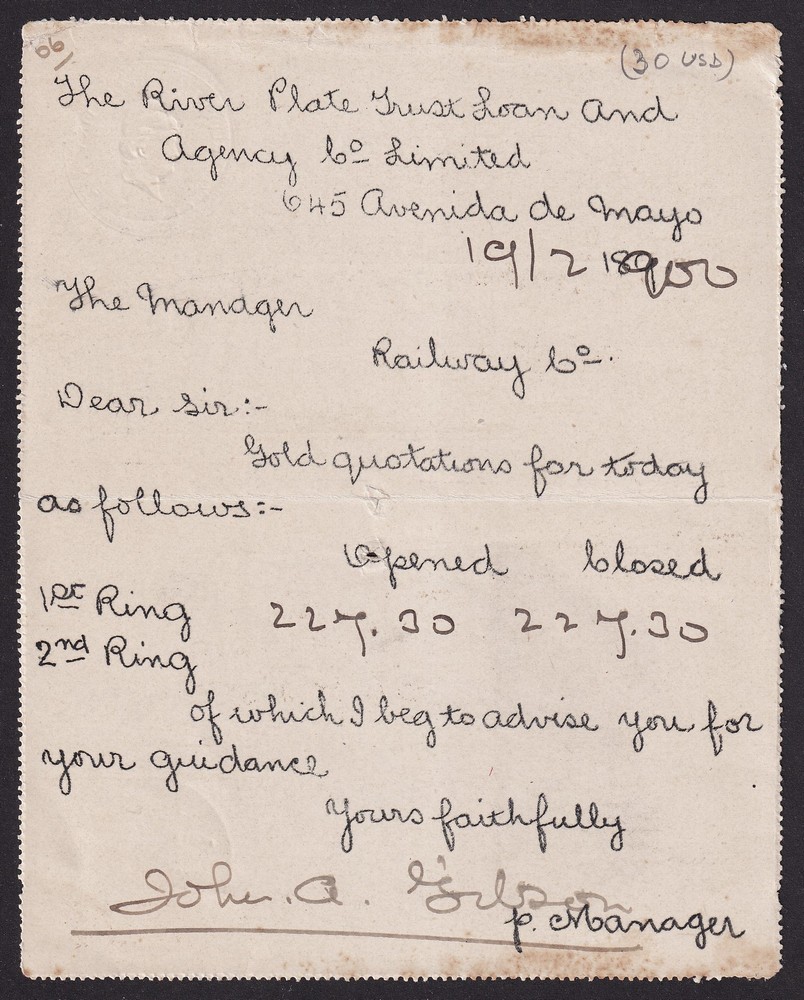 166
(30 USD)
The River Plate Trust Loan and
Agency Co Limited
645 Avenida de Mayo
19/2 1900
The Manager
Railway Co.
Dear Sir:-
Gold quotations for today
as follows:-
Opened Closed
1st Ring 227.30 227.30
2nd Ring
of which I beg to advise you for
your guidance
Yours faithfully
John. A. Gibson
p. Manager